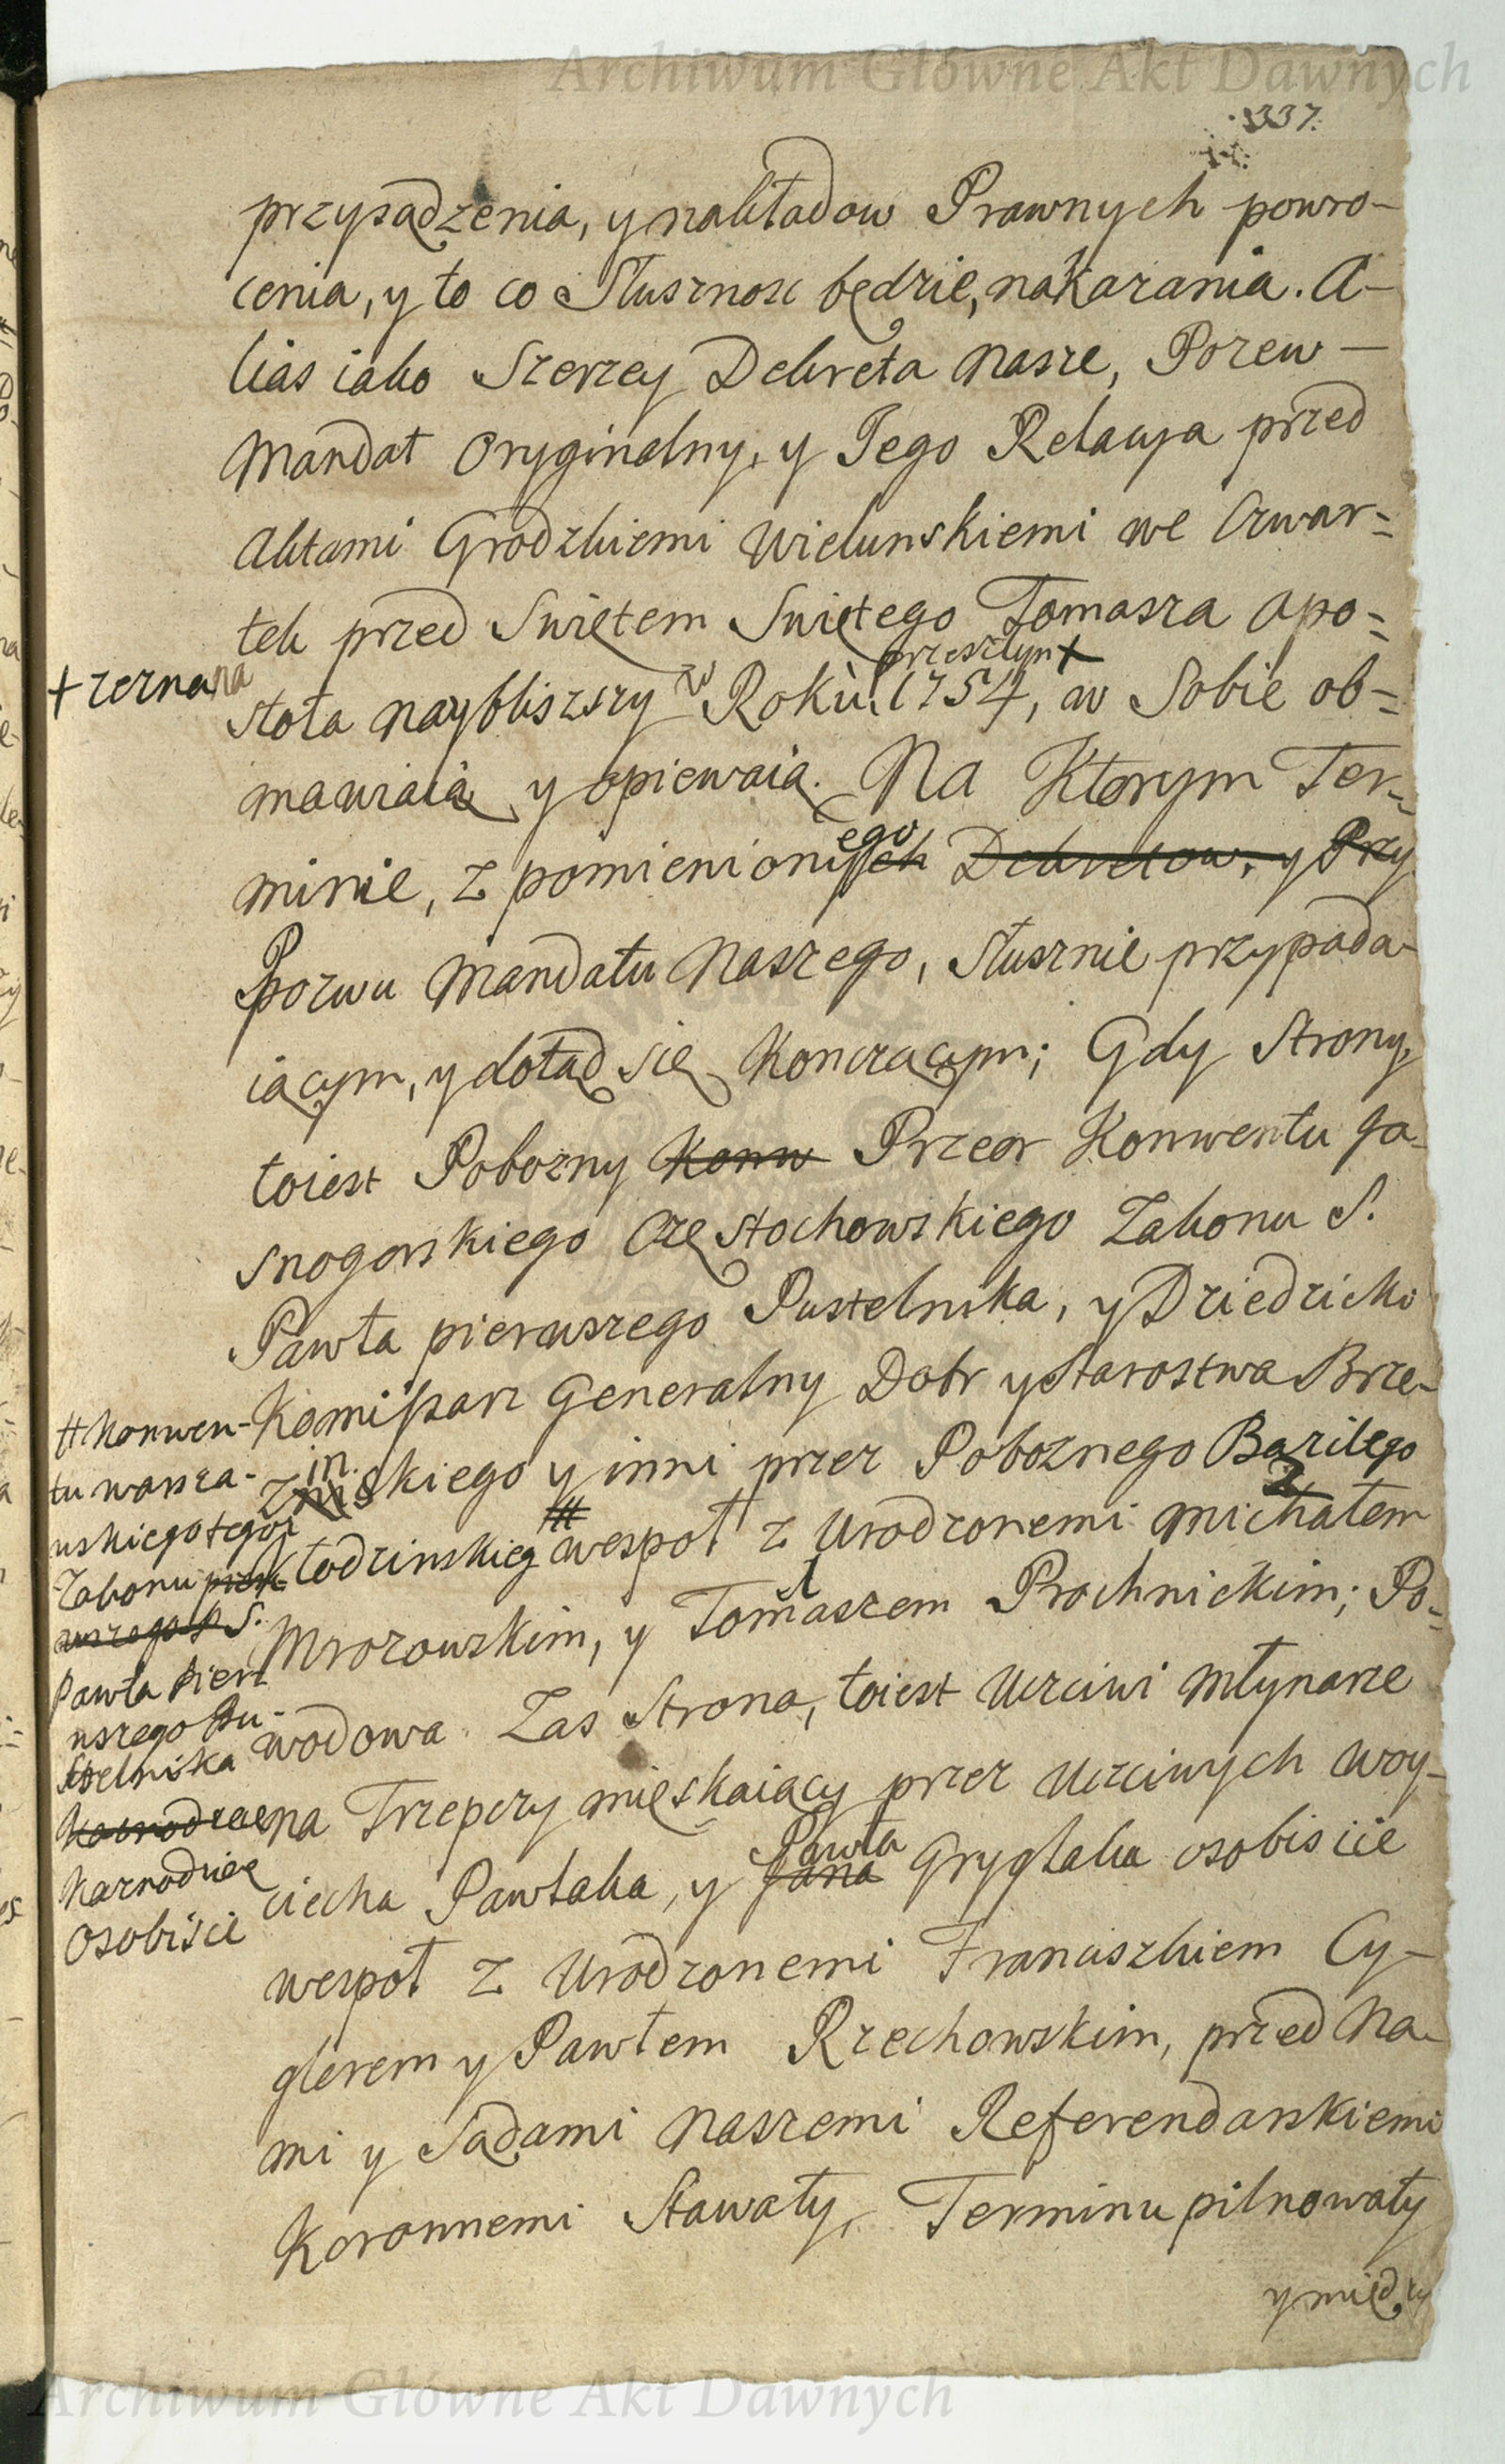 Archiwum Główne Akt Dawnych
337.
przysądzenia, y nakładow Prawnych powro-
cenia, y to co Słusznosc będzie, nakazania. A-
lias iako Szerzey Dekreta Nasze, Pozew —
Mandat Oryginalny, y Jego Relacya przed
Aktami Grodzkiemi Wielunskiemi we Czwar=
tek przed Swiętem Swiętego Tomasza Apo=
przeszłym +
+ zezna na
stoła naybliszszy w Roku 1754, w Sobie ob=
mawiaią y opiewaią. Na Ktorym Ter-
ego
minie, z pomienionych Dekretow, y Przy
Pozwu Mandatu Naszego, słusznie przypada-
iącym, y dotąd się Konczącym; Gdy Strony,
toiest Pobozny Konw Przeor Konwentu Ja-
snogorskiego Częstochowskiego Zakonu S.
Pawła pierwszego Pustelnika, y Dziedzicki
Kommissarz Generalny Dobr y Starostwa Brze-
in.
znickiego y inni przez Poboznego Bazilego
Kłodzinskieg # wespoł z Urodzonemi Michałem
Mrozowskim, y Tomaszem Prochnickim; Po=
wodowa Zas Strona, toiest Uczciwi Młynarze
na Trzepczy mięskaiący przez Uczciwych Woy-
Pawła
ciecha Pawlaka, y Jana Gryglaka osobiscie
wespoł z Urodzonemi Franciszkiem Cy-
glerem y Pawłem Rzechowskim, przed Na-
mi y Sądami Naszemi Referendarskiemi
Koronnemi Stawały, Terminu pilnowały
y między
# Konwen-
tu warsza-
wskiego tegoż
Zakonu pier
wszego P S.
Pawła Pier
wszego Pu-
stelnika
Kaznodzieie
Kaznodzieię
Osobiscie
Archiwum Główne Akt Dawnych